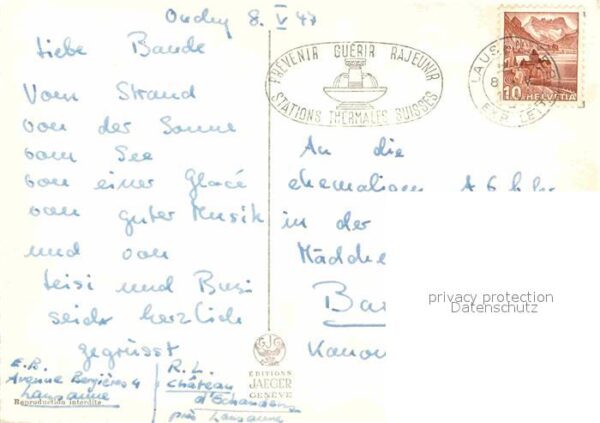 Ouchy 8. V 47
Liebe Bande
Vom Strand
von der Sonne
vom See
von einer Glacé
von guter Musik
und von
Leisi und Busi
seid herzlich
gegrüsst
E. R.
Avenue Bergières 4
Lausanne
R. L.
Château
près Lausanne
Reproduction interdite
PRÉVENIR GUÉRIR RAJEUNIR
STATIONS THERMALES SUISSES
LAUS
EXP. LETT
10 HELVETIA
An die
ehemaligen A 6
in der
Mädche
Ba
Kanon
privacy protection
Datenschutz
EDITIONS
JAEGER
GENÈVE